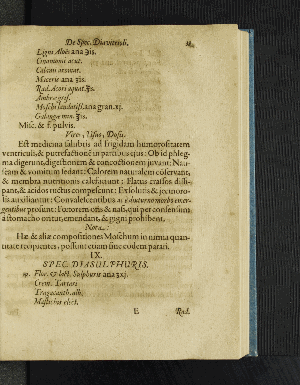 De Spec. Diavitrioli.
Ligni Aloës ana ʒis.
Cinamomi acut.
Calami aromat.
Maceris ana ʒis.
Rad. Acori aquat. ʒs.
Ambræ gris.
Moschi ana gran. xj.
Galangæ min. ʒis.
Misc. & f. pulvis.
Vires, Usus, Dosis.
Est medicina salubris ad frigidam humorositatem
ventriculi, & putrefactionē in partibus ejus: Ob id phleg-
ma digerunt, digestionem & concoctionem juvant; Nau-
seam & vomitum sedant: Calorem naturalem cōservant,
& membra nutritionis calefaciunt: Flatus crassos dissi-
pant, & acidos ructus compescunt:
auxiliantur: Convalescentibus ac è diuturno morbo emer-
gentibus prosunt: Foetorem oris & nasi, qui per consensum
à stomacho oritur, emendant, & gigni prohibent.
Nota:
Hæ & aliæ compositiones Moschum in nimia quan-
titate recipientes, possunt etiam sine eodem parari.
IX.
SPEC. DIASULPHURIS.
℞. Flor. & lact. Sulphuris ana ʒxj.
Crem. Tartari
Tragacanth. alb.
Mastiches elect.
E Rad.